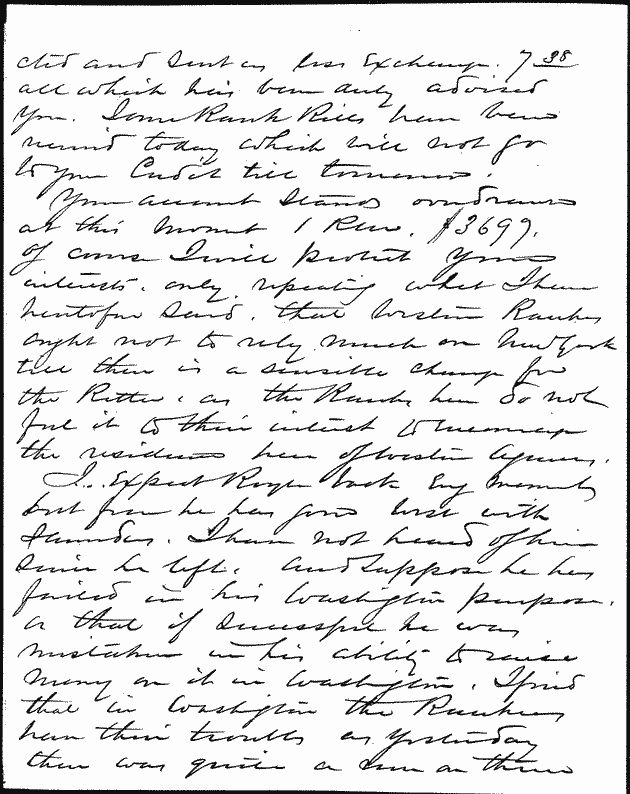 cted and sent as less Exchange. 7 38
all which has been duly advised
you. Some Bank Bills have been
received today which will not go
to your Credit till tomorrow.
Your account stands overdrawn
at this moment $3699.
of course I will protect your
interests. only repeating what I have
heretofore said. that western Bankers
ought not to rely much on New York
till there is a sensible change for
the Better. as the Banks here do not
feel it to their interest to encourage
the residence here of western Agencies.
I Expect Roger back Evy moment
but fear he has gone west with
Saunders. I have not heard of him
since he left. and suppose he has
failed in his Washington purpose.
or that if successful he was
mistaken in his ability to raise
money on it in Washington. I find
that in Washington the Bankers
have their troubles as yesterday
there was quite a run on three